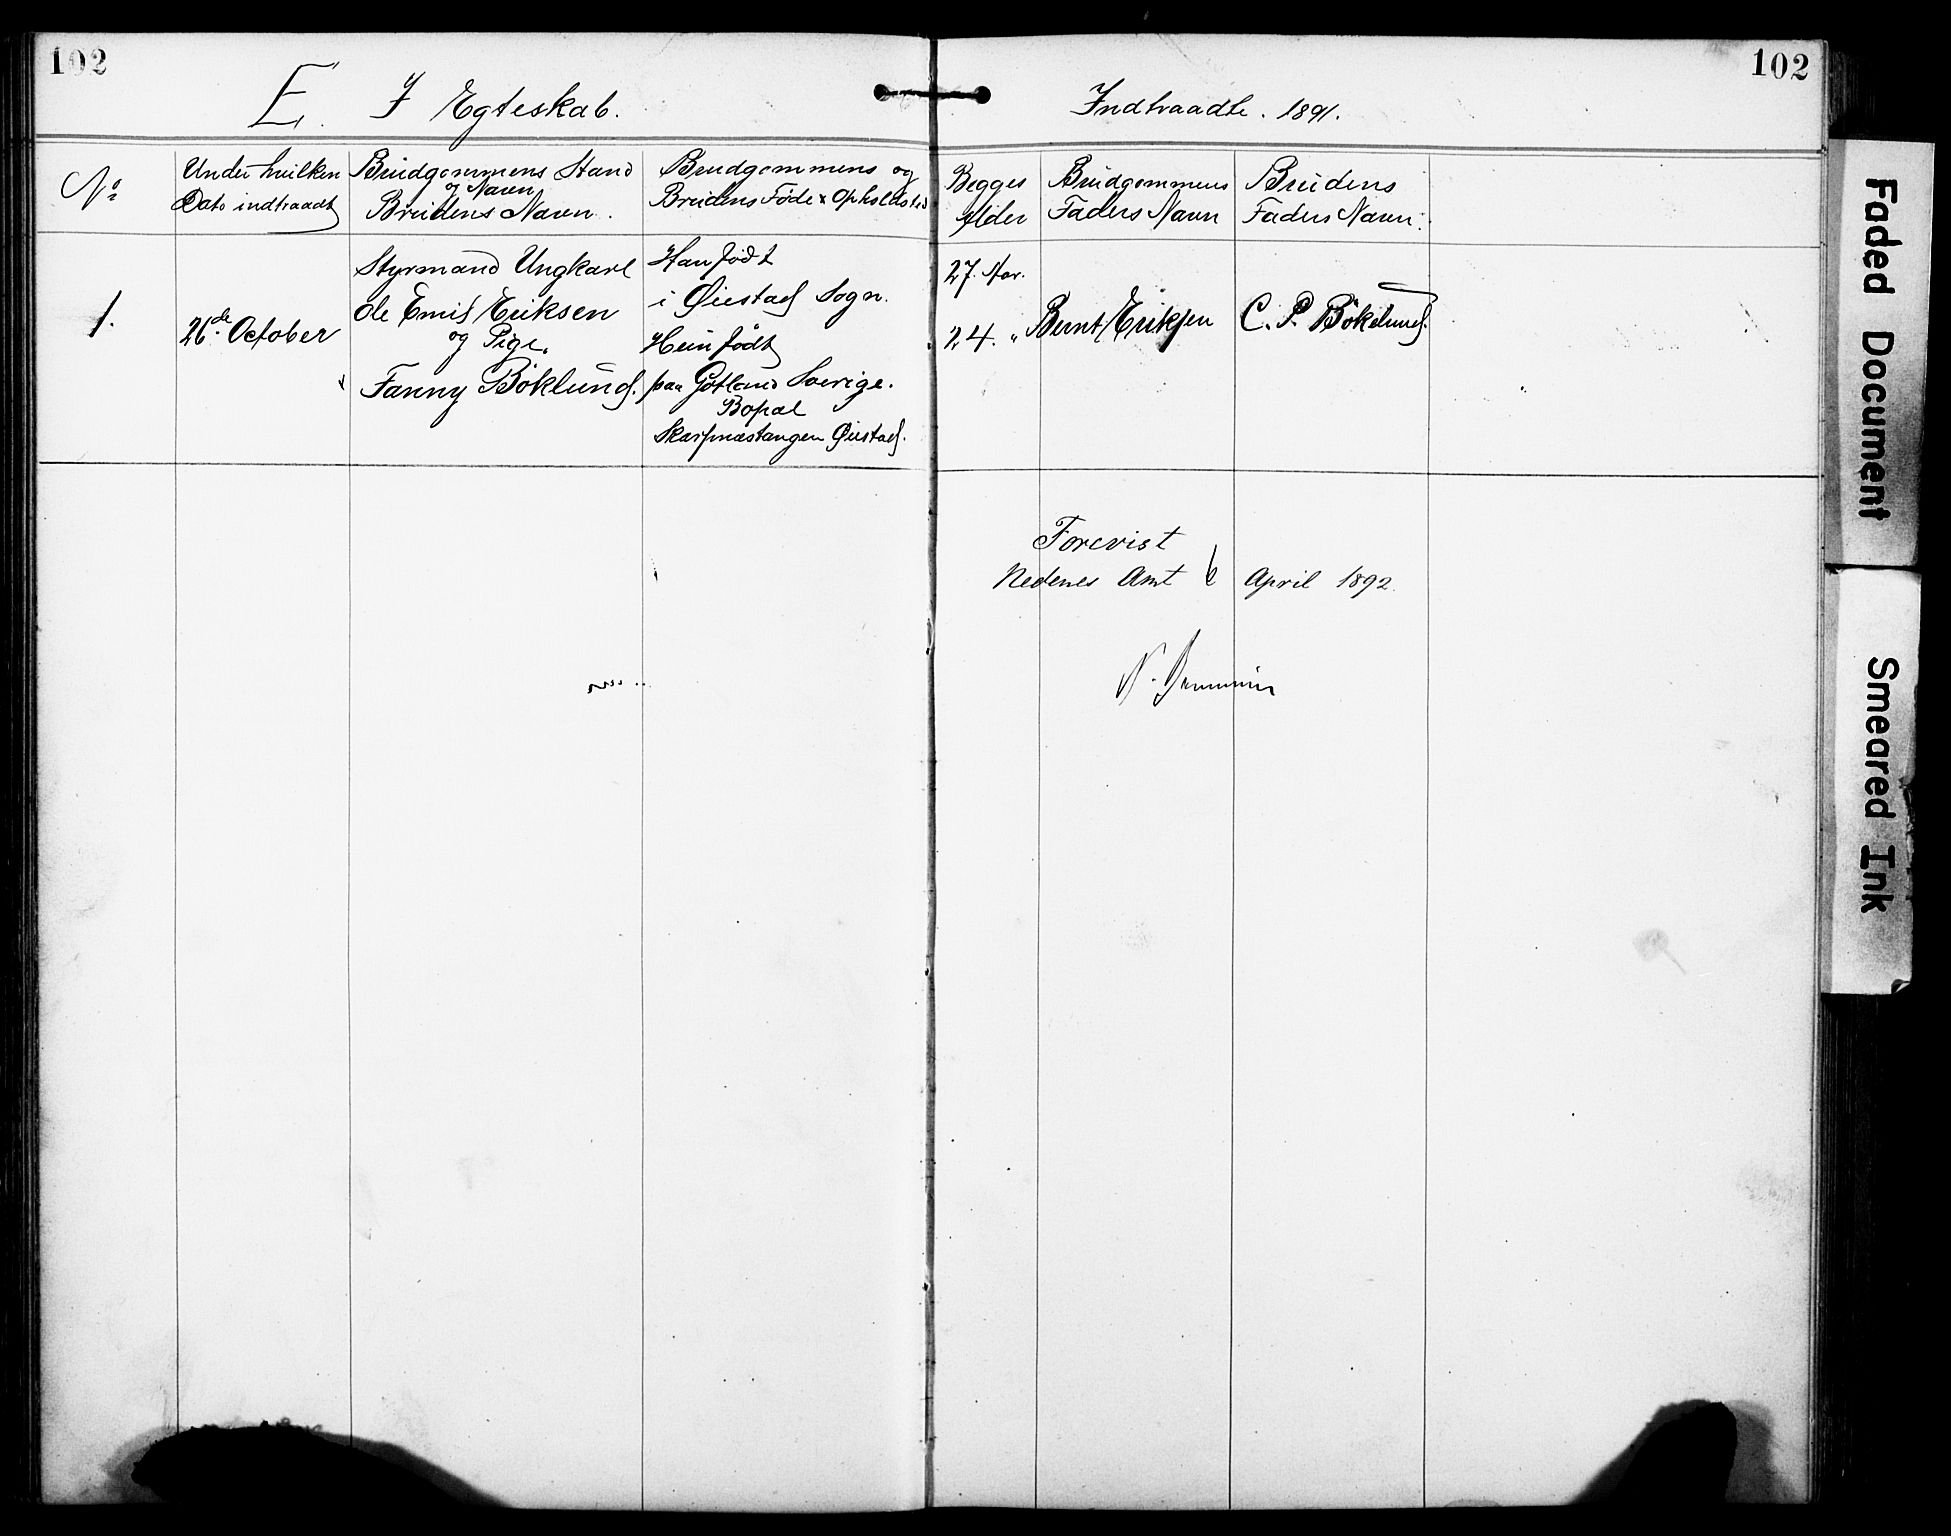 102
102
E. I Egteskab.
Indtraadte. 1891.
No
Under hvilken
Dato indtraadt
Brudgommens Stand
og Navn
Brudens Navn.
Brudgommens og
Brudens Føde & Opholdsted
Begges
Alder
Brudgommens
Faders Navn
Brudens
Faders Navn.
1.
26de October
Styrmand Ungkarl
Ole Emil Eriksen
og Pige
Fanny Böklund.
Han født
i Øiestad Sogn.
Hun født
paa Gotland Sverige.
Bopæl
Skarpnæstangen Øiestad.
27. Aar.
24. "
Bernt Eriksen
C. P. Bökelund.
Forevist
Nedenes Amt 6 April 1892.
Faded Document
Smeared Ink